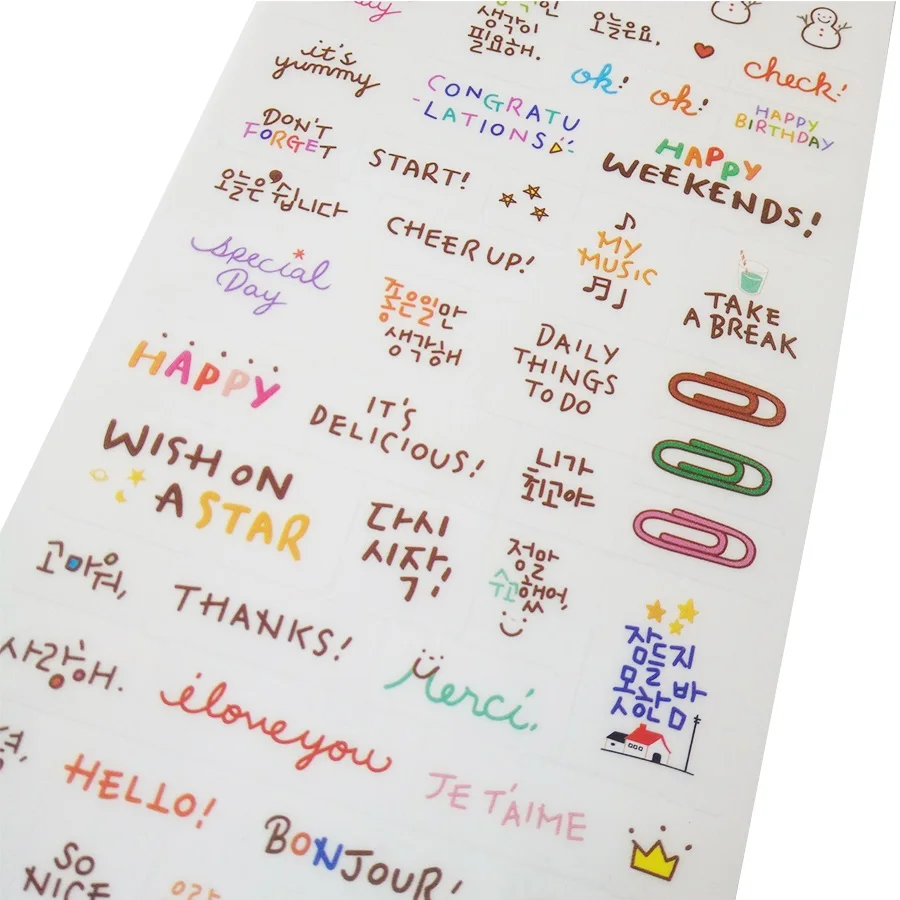 생각이
필요해.
오늘은요,
it's
yummy
ok!
ok!
check!
CONGRATU
LATIONS
HAPPY
BIRTHDAY
DON'T
FORGET
START!
HAPPY
WEEKENDS!
오늘은 쉽니다
CHEER UP!
MY
MUSIC
special
Day
좋은일만
생각해
TAKE
A BREAK
DAILY
THINGS
TO DO
HAPPY
IT'S
DELICIOUS!
WISH ON
A STAR
니가
최고야
다시
시작!
정말
수고했어,
고마워,
THANKS!
잠들지
못한 밤
사랑해.
Merci,
i love you
HELLO!
JE T'AIME
BONJOUR!
SO
NICE